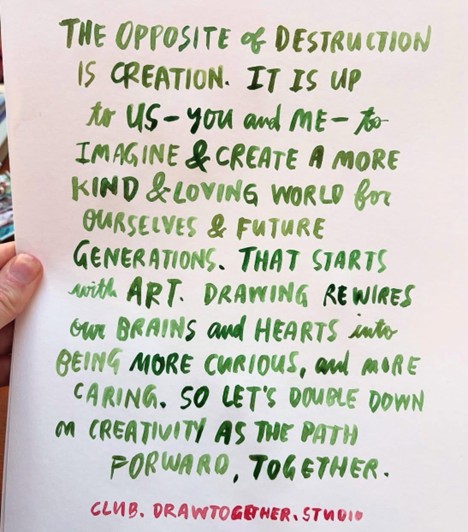 THE OPPOSITE of DESTRUCTION
IS CREATION. IT IS UP
to US - YOU and ME - to
IMAGINE & CREATE A MORE
KIND & LOVING WORLD for
OURSELVES & FUTURE
GENERATIONS. THAT STARTS
with ART. DRAWING REWIRES
our BRAINS and HEARTS into
BEING MORE CURIOUS, and MORE
CARING. SO LET'S DOUBLE DOWN
on CREATIVITY AS THE PATH
FORWARD, TOGETHER.
CLUB. DRAWTOGETHER. STUDIO